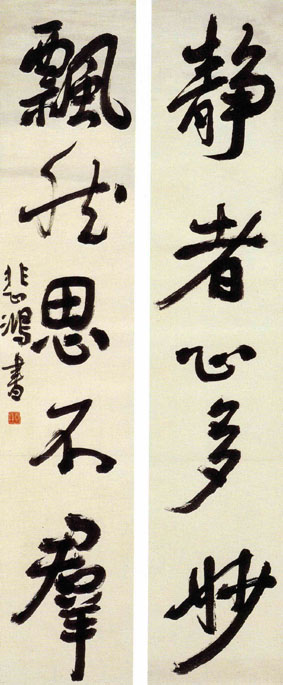 静者心多妙
飘然思不群
悲鴻書